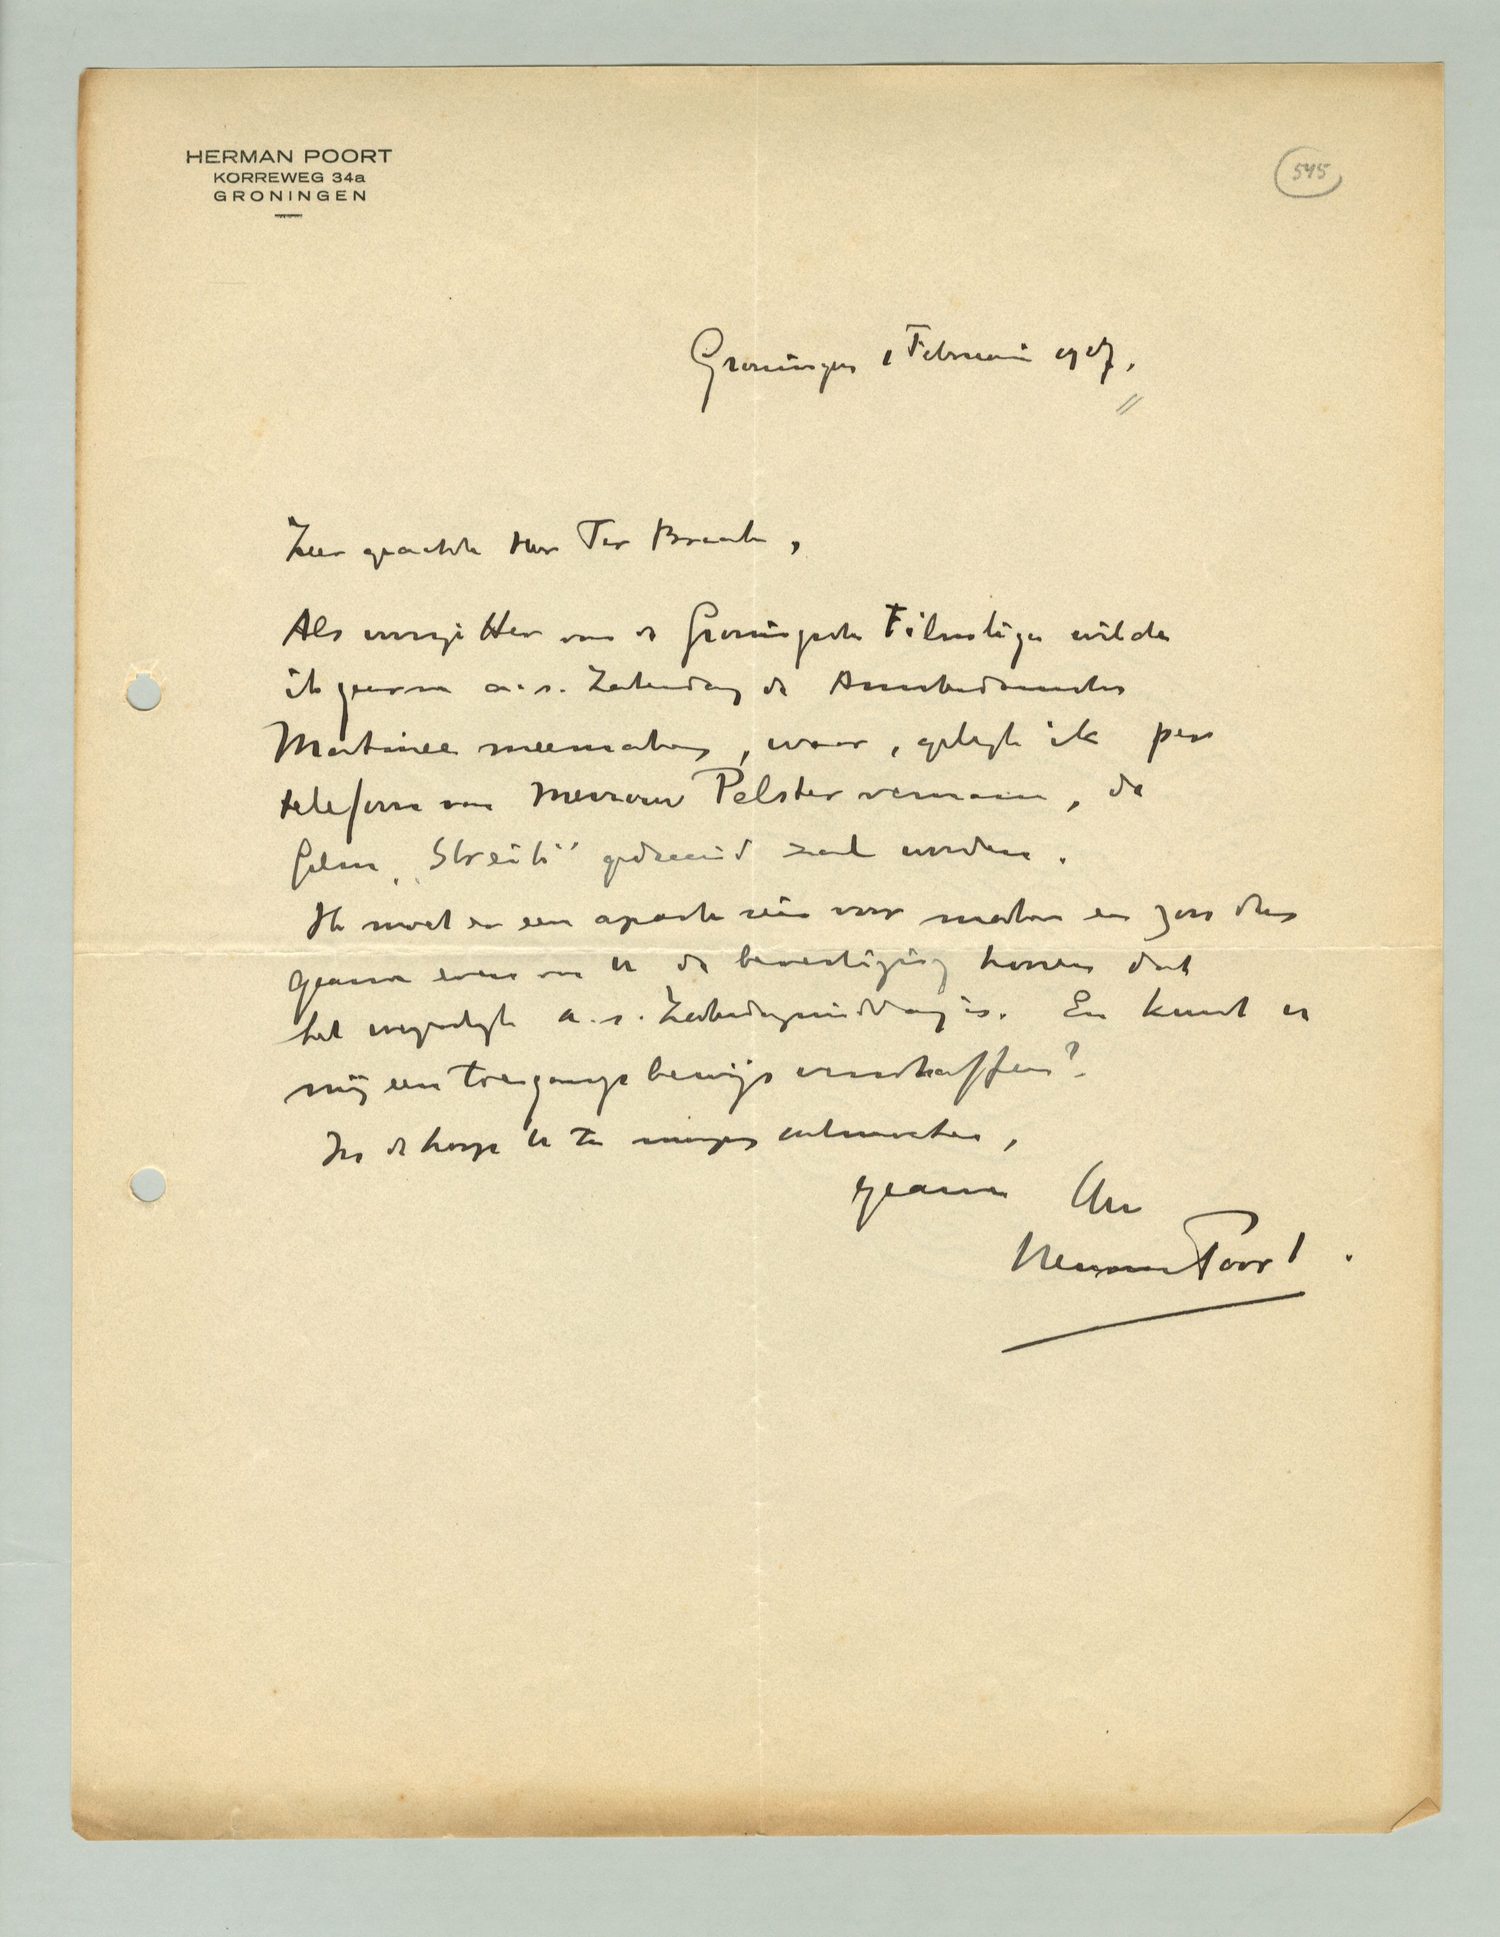 HERMAN POORT
KORREWEG 34a
GRONINGEN
545
Groningen 1 Februari 1927.
Zeer geachte Heer Ter Braak,
Als voorzitter van de Groningsche Filmliga wilde
ik gaarne a.s. Zaterdag de Amsterdamsche
Matinee meemaken, waar, gelijk ik per
telefoon van Mevrouw Pelster vernam, de
film "Streik" gedraaid zal worden.
Ik moet er een aparte reis voor maken en zou dus
gaarne even van U de bevestiging hooren dat
het a.s. Zaterdagmiddag is. En kunt U
mij een toegangsbewijs verschaffen?
In de hoop U te mogen ontmoeten,
gaarne Uw
Herman Poort.